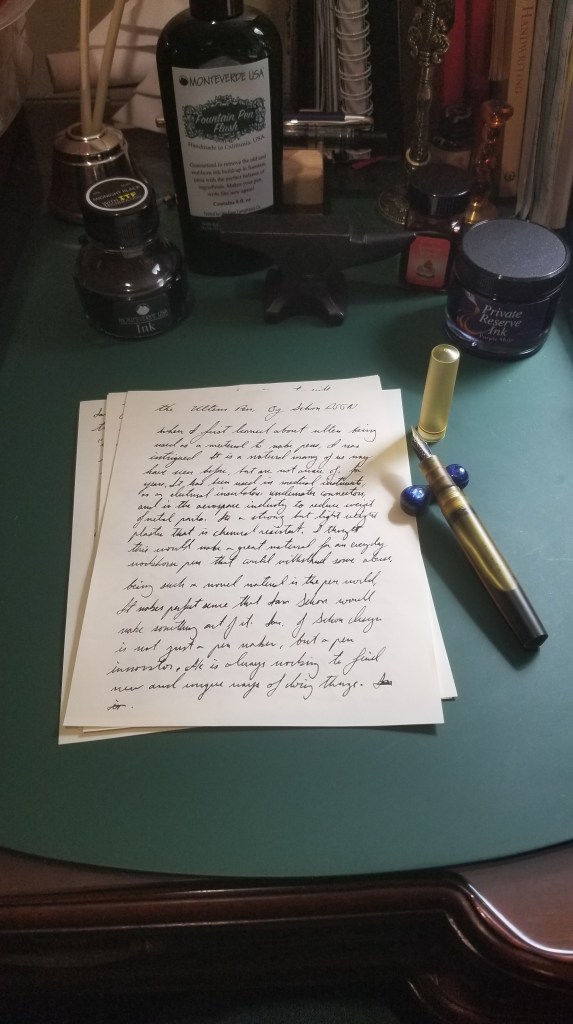 MONTEVERDE USA
Fountain Pen
Flush
Handmade in California, USA
Contains 8 fl. oz
MONTEVERDE USA
Ink
Private
Reserve
Ink
HANDWRITING
the Ultem Pen By Schon DSGN
when I first learned about ultem being
used as a material to make pens, I was
intrigued. It is a material many of us may
have seen before, but are not aware of. for
years, It has been used in medical instruments,
as an electrical insulator, underwater connectors,
and in the aerospace industry to reduce weight
of metal parts. Its a strong but light weight
plastic that is chemical resistant. I thought
this would make a great material for an everyday
workhorse pen that could withstand some abuse.
being such a novel material in the pen world,
It makes perfect sense that Ian Schon would
make something out of it. Ian, of Schon design
is not just a pen maker, but a pen
innovator. He is always working to find
new and unique ways of doing things.